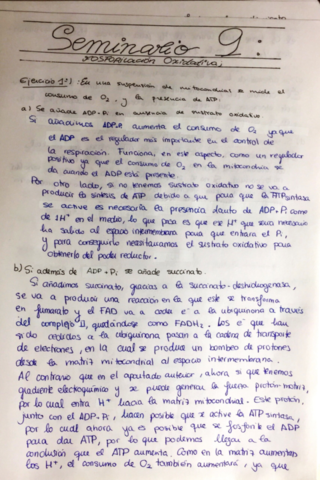 Seminario 9:
FOSFORILACIÓN OXIDATIVA
Ejercicio 1º) En una suspensión de mitocondrias se mide el
consumo de O2 y la presencia de ATP.
a) Se añade ADP+Pi en ausencia de sustrato oxidativo
Si añadimos ADP+Pi aumenta el consumo de O2 ya que
el ADP es el regulador más importante en el control de
la respiración. Funciona, en este aspecto, como un regulador
positivo ya que el consumo de O2 en la mitocondria se
da cuando el ADP está presente.
Por otro lado, si no tenemos sustrato oxidativo no se va a
producir la síntesis de ATP debido a que para que la ATPsintasa
se active es necesaria la presencia tanto de ADP+Pi como
de 1H+ en el medio, lo que pasa es que ese H+ que sería necesario
ha salido al espacio intermembrana para que entrara el Pi,
y para conseguirlo necesitaríamos el sustrato oxidativo para
obtener el poder reductor.
b) Si además de ADP+Pi se añade succinato.
Si añadimos succinato, gracias a la succinato-deshidrogenasa,
se va a producir una reacción en la que este se transforma
en fumarato y el FAD va a ceder e- a la ubiquinona a través
del complejo II, quedándose como FADH2. Los e- que han
sido cedidos a la ubiquinona pasan a la cadena de transporte
de electrones, en la cual se produce un bombeo de protones
desde la matriz mitocondrial al espacio intermembrana.
Al contrario que en el apartado anterior, ahora sí que tenemos
gradiente electroquímico y se puede generar la fuerza protón-motriz,
por lo cual entra H+ hacia la matriz mitocondrial. Este protón,
junto con el ADP+Pi, hacen posible que se active la ATPsintasa,
por lo cual ahora ya es posible que se fosforile el ADP
para dar ATP, por lo que podemos llegar a la
conclusión que el ATP aumenta. Como en la matriz aumentan
los H+, el consumo de O2 también aumentará, ya que